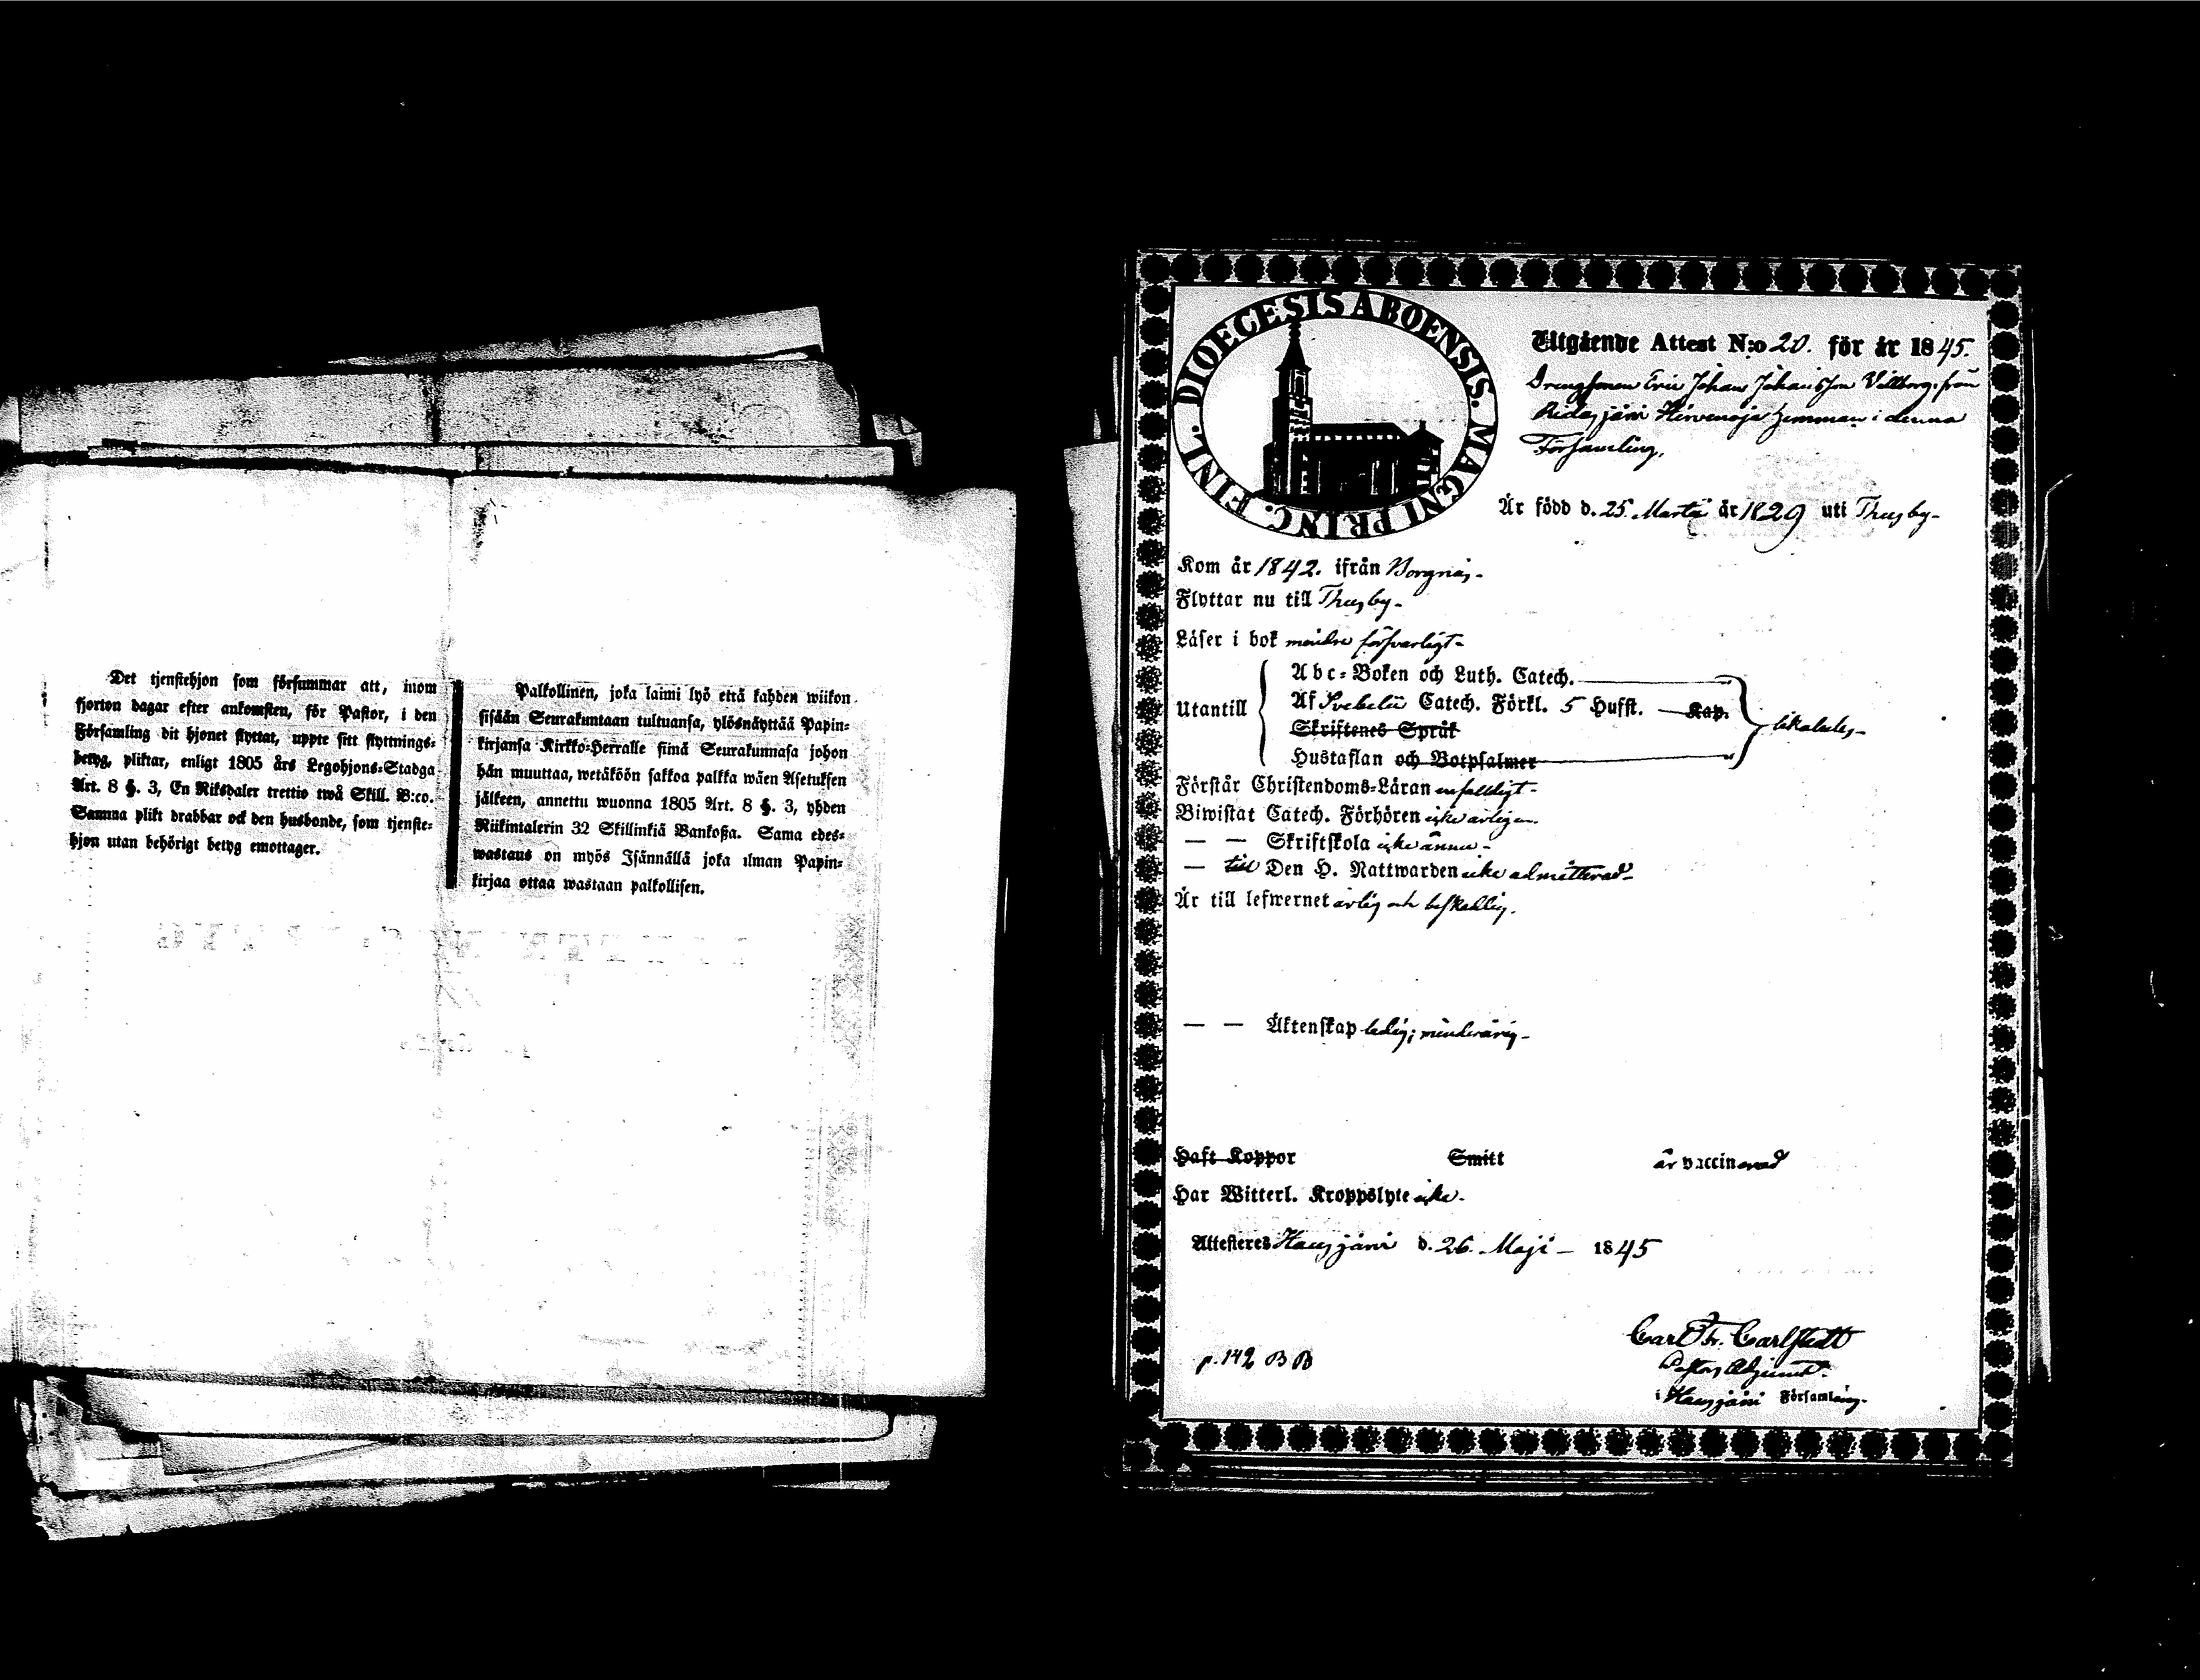 Det tjenstehjon som försummar att, inom
fjorton dagar efter ankomsten, för Pastor, i den
Församling dit hjonet flyttat, uppte sitt flyttnings-
betyg, pliktar, enligt 1805 års Legohjons-Stadga
Art. 8 §. 3, En Riksdaler trettio twå Skill. B:co.
Samma plikt drabbar ock den husbonde, som tjenste-
hjon utan behörigt betyg emottager.
Palkollinen, joka laimi lyö että kahden wiikon
sisään Seurakuntaan tultuansa, ylösnäyttää Papin-
kirjansa Kirkko-Herralle siinä Seurakunnasa johon
hän muuttaa, wetäköön sakkoa palkka wäen Asetuksen
jälkeen, annettu wuonna 1805 Art. 8 §. 3, yhden
Riikintalerin 32 Skillinkiä Bankoßa. Sama edes-
wastaus on myös Isännällä joka ilman Papin-
kirjaa ottaa wastaan palkollisen.
DIOECESIS ABOENSIS. MAGNI PRINC. FINL.
Utgående Attest N:o 20. för år 1845.
Drengsonen Eric Johan Johansson Villborg från
Ridasjärvi Hirvenoja hemman i denna
Församling.
Är född d. 25 Martii år 1829 uti Thusby-
Kom år 1842. ifrån Borgnäs-
Flyttar nu till Thusby-
Läser i bok mindre försvarligt-
Utantill
Abc-Boken och Luth. Catech.
Af Svebelii Catech. Förkl. 5 Hufst. Kap.
Skriftenes Språk
Hustaflan och Botpsalmer
likaledes-
Förstår Christendoms-Läran enfaldigt-
Biwistat Catech. Förhören icke årligen.
— — Skriftskola icke ännu-
— till Den H. Nattwarden icke admitterad-
Är till lefwernet ärlig och beskedlig.
— — Äktenskap ledig; minderårig-
Haft Koppor Smitt är vaccinerad
Har Witterl. Kroppslyte icke.
Attesteres Hausjärvi d. 26. Maji - 1845
Carl Fr. Carlstedt
Pastors Adjunct.
i Hausjärvi Församling.
p. 142 B B